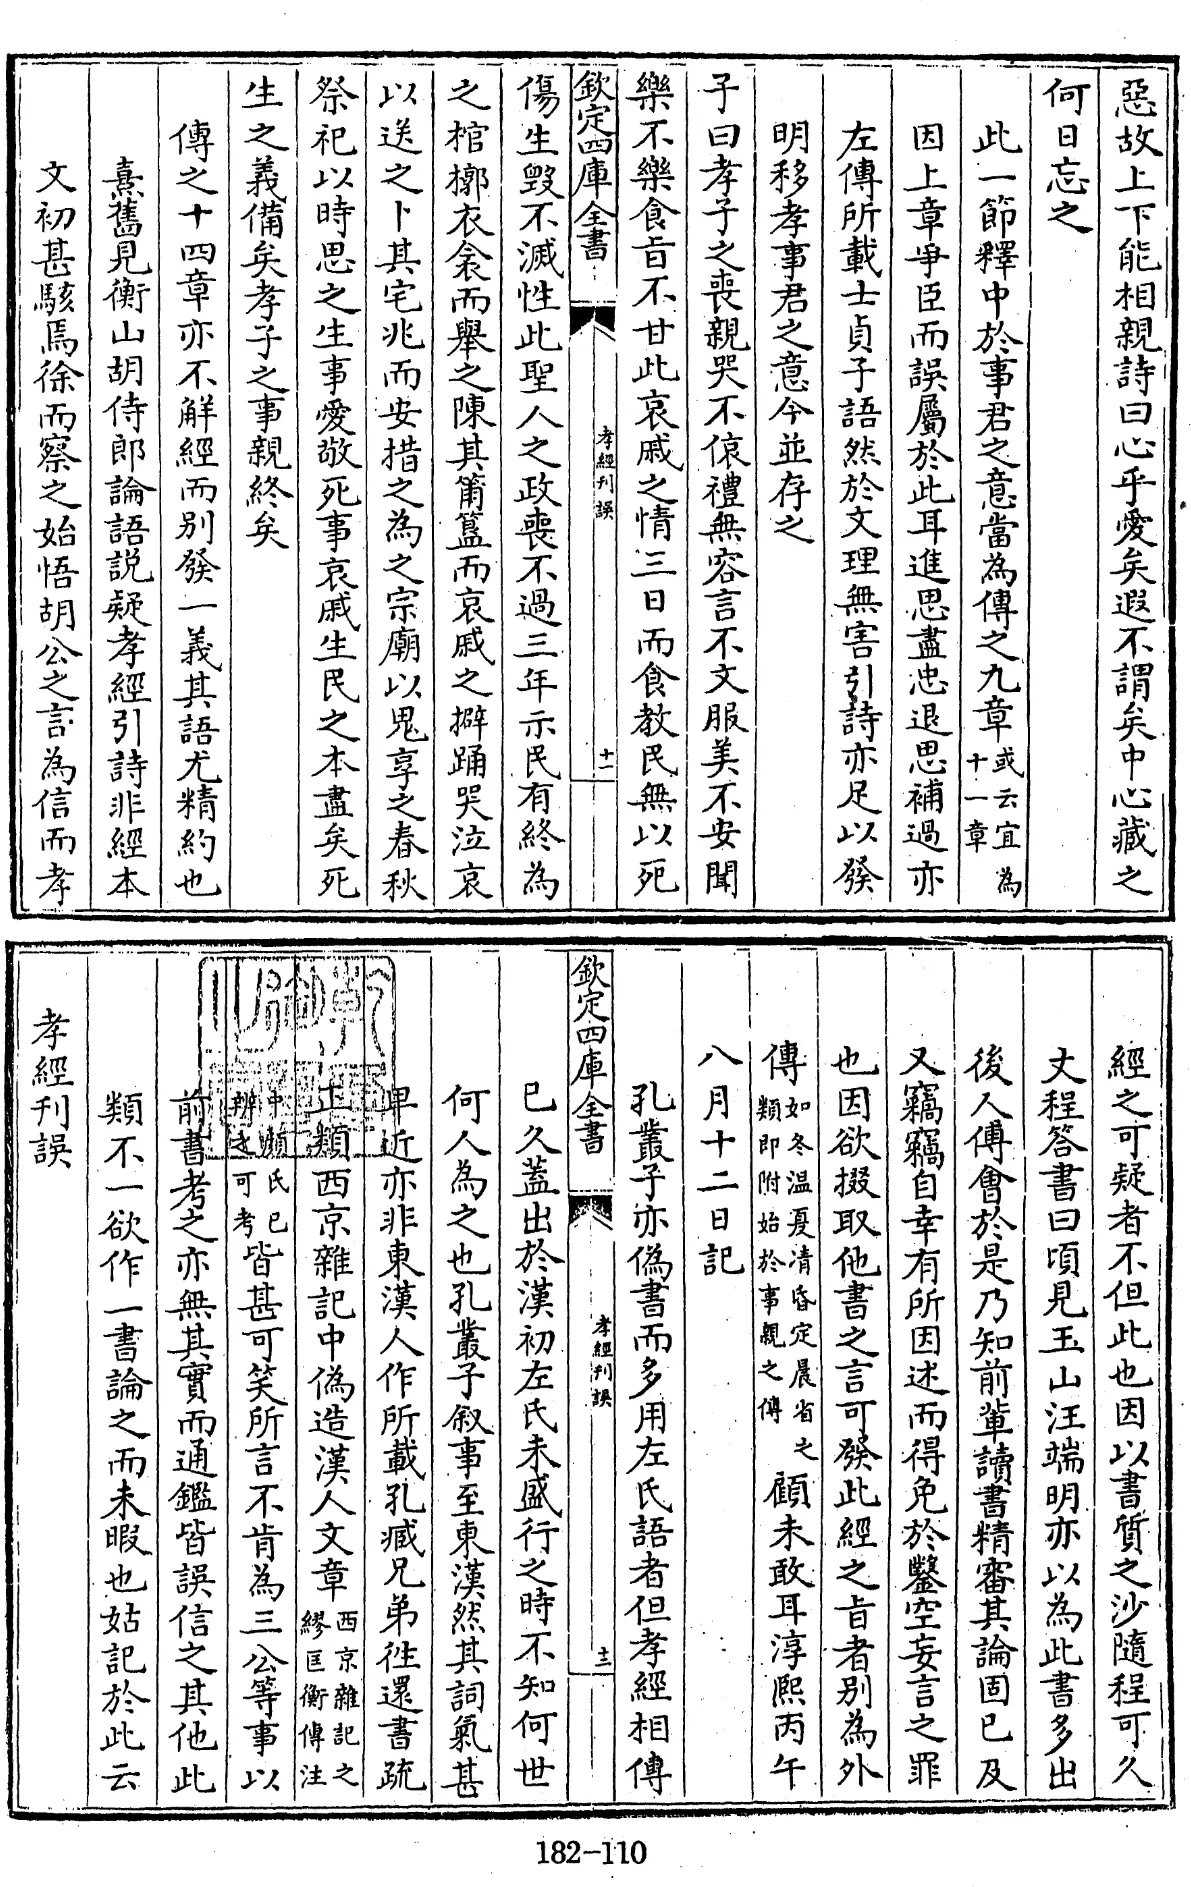 惡故上下能相親詩曰心乎愛矣遐不謂矣中心藏之
何日忘之
此一節釋中於事君之意當為傳之九章或云宜為十一章
因上章爭臣而誤屬於此耳進思盡忠退思補過亦
左傳所載士貞子語然於文理無害引詩亦足以發
明移孝事君之意今並存之
子曰孝子之喪親哭不偯禮無容言不文服美不安聞
樂不樂食旨不甘此哀戚之情三日而食教民無以死
欽定四庫全書
孝經刊誤
十一
傷生毀不滅性此聖人之政喪不過三年示民有終為
之棺槨衣衾而舉之陳其簠簋而哀戚之擗踊哭泣哀
以送之卜其宅兆而安措之為之宗廟以鬼享之春秋
祭祀以時思之生事愛敬死事哀戚生民之本盡矣死
生之義備矣孝子之事親終矣
傳之十四章亦不解經而別發一義其語尤精約也
熹舊見衡山胡侍郎論語説疑孝經引詩非經本
文初甚駭焉徐而察之始悟胡公之言為信而孝
經之可疑者不但此也因以書質之沙隨程可久
丈程答書曰頃見玉山汪端明亦以為此書多出
後人傅會於是乃知前輩讀書精審其論固已及
又竊竊自幸有所因述而得免於鑿空妄言之罪
也因欲掇取他書之言可發此經之旨者別為外
傳如冬温夏凊昏定晨省之類即附始於事親之傳顧未敢耳淳熙丙午
八月十二日記
孔叢子亦偽書而多用左氏語者但孝經相傳
欽定四庫全書
孝經刊誤
十二
已久蓋出於漢初左氏未盛行之時不知何世
何人為之也孔叢子叙事至東漢然其詞氣甚
卑近亦非東漢人作所載孔臧兄弟往還書疏
正類西京雜記中偽造漢人文章西京雜記之繆匡衡傳注
中顔氏已辨之可考皆甚可笑所言不肯為三公等事以
前書考之亦無其實而通鑑皆誤信之其他此
類不一欲作一書論之而未暇也姑記於此云
孝經刊誤
182-110